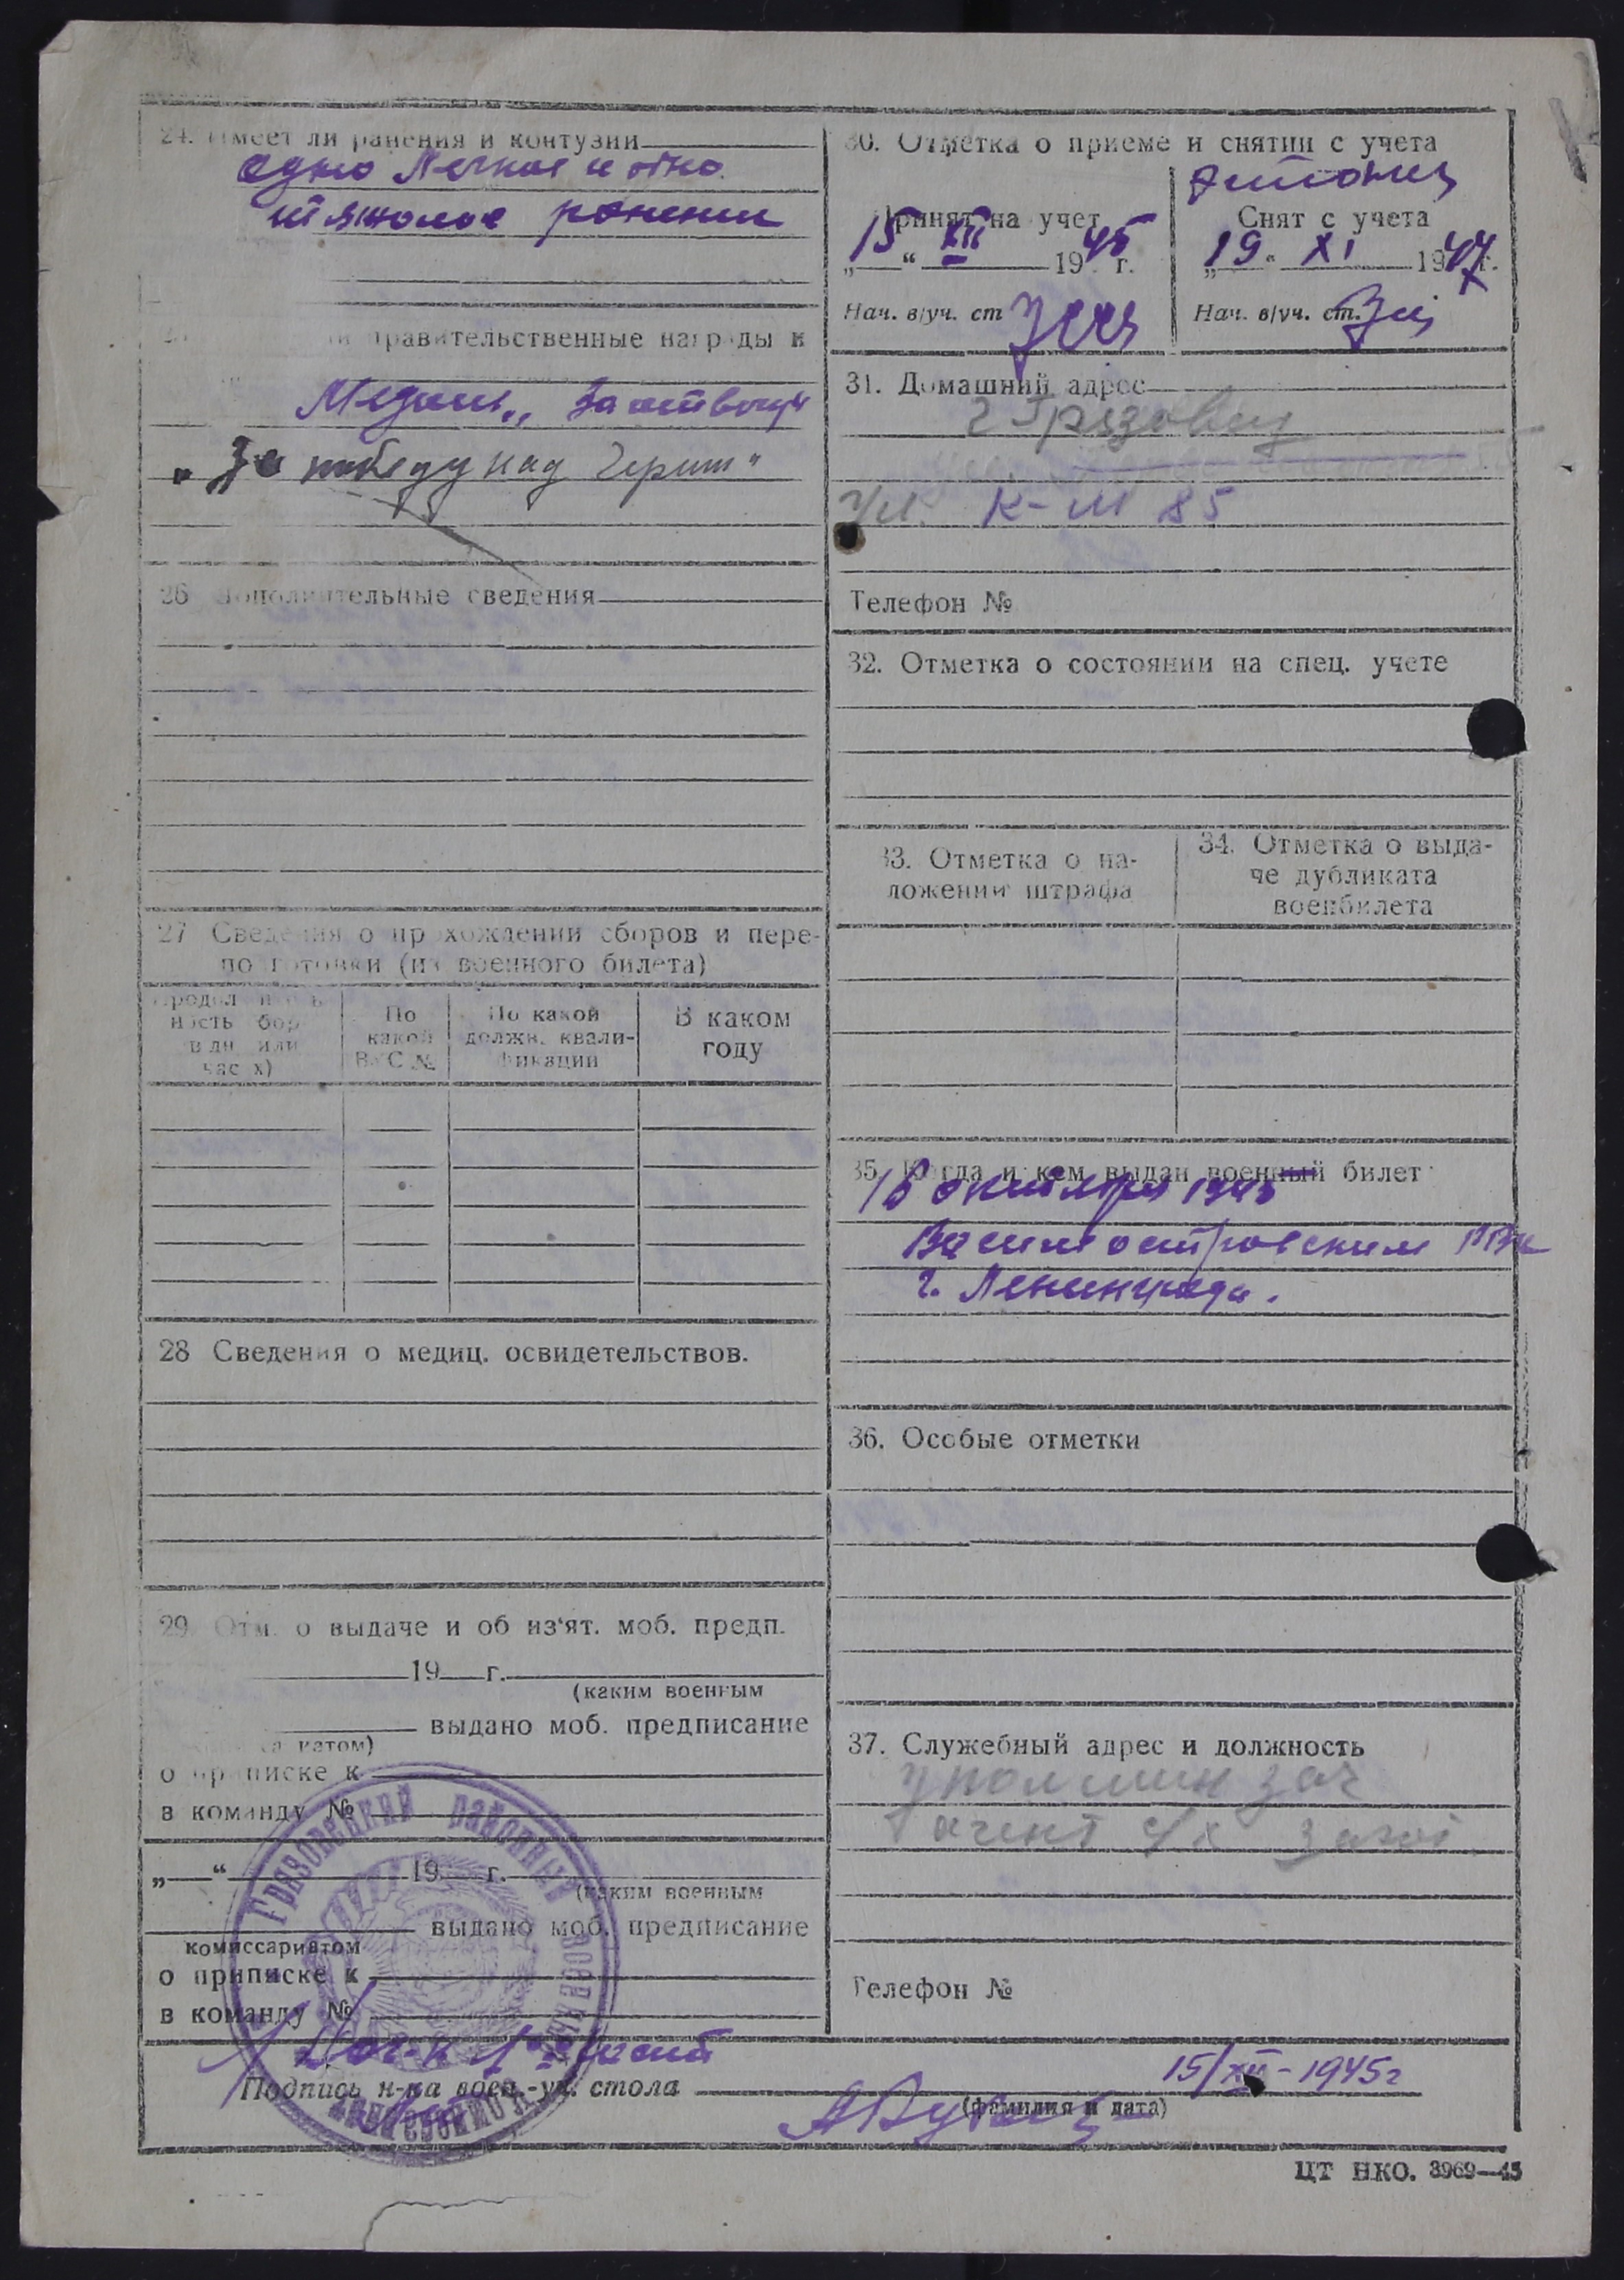 24. Имеет ли ранения и контузии
одно Легкое и одно
тяжолое ранении
правительственные награды и
Медаль „За отвагу"
„За победу над Герман"
26 Дополнительные сведения
27 Сведения о прохождении сборов и пере-
подготовки (из военного билета)
Продолжитель-
ность сбор
в дн. или
часах)
По
какой
ВУС №
По какой
должн. квали-
фикации
В каком
году
28 Сведения о медиц. освидетельствов.
29. Отм. о выдаче и об из'ят. моб. предп.
19 г.
(каким военным
выдано моб. предписание
о приписке к
в команду №
„ “ 19 г.
(каким военным
выдано моб. предписание
комиссариатом
о приписке к
в команду №
30. Отметка о приеме и снятии с учета
Принят на учет
„15“ XII 1945 г.
Нач. в/уч. ст
Снят с учета
„19“ XI 1947 г.
Нач. в/уч. ст.
31. Домашний адрес
г Грязовец
ул. К-М 85
Телефон №
32. Отметка о состоянии на спец. учете
33. Отметка о на-
ложении штрафа
34. Отметка о выда-
че дубликата
военбилета
35. Когда и кем выдан военный билет
16 октября 1943
Василеостровским РВК
г. Ленинграда.
36. Особые отметки
37. Служебный адрес и должность
уполминзаг
агент с/х
Телефон №
Грязовецкий районный военный комиссариат
Подпись н-ка воен.-уч. стола
15/XII-1945г
(фамилия и дата)
ЦТ НКО. 3969—45